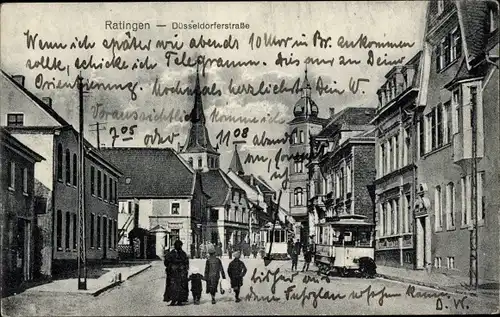 Ratingen — Düsseldorferstraße
Wenn ich später wie abends 10 Uhr in Br. ankommen
sollte, schicke ich Telegramm. Dies nur an Deine
Orientierung. Nochmals herzlichst Dein W.
Voraussichtlich komme ich
7 05 oder 11 08 abends
an, bisher aus
dem Fahrplan ersehen kann
D. W.